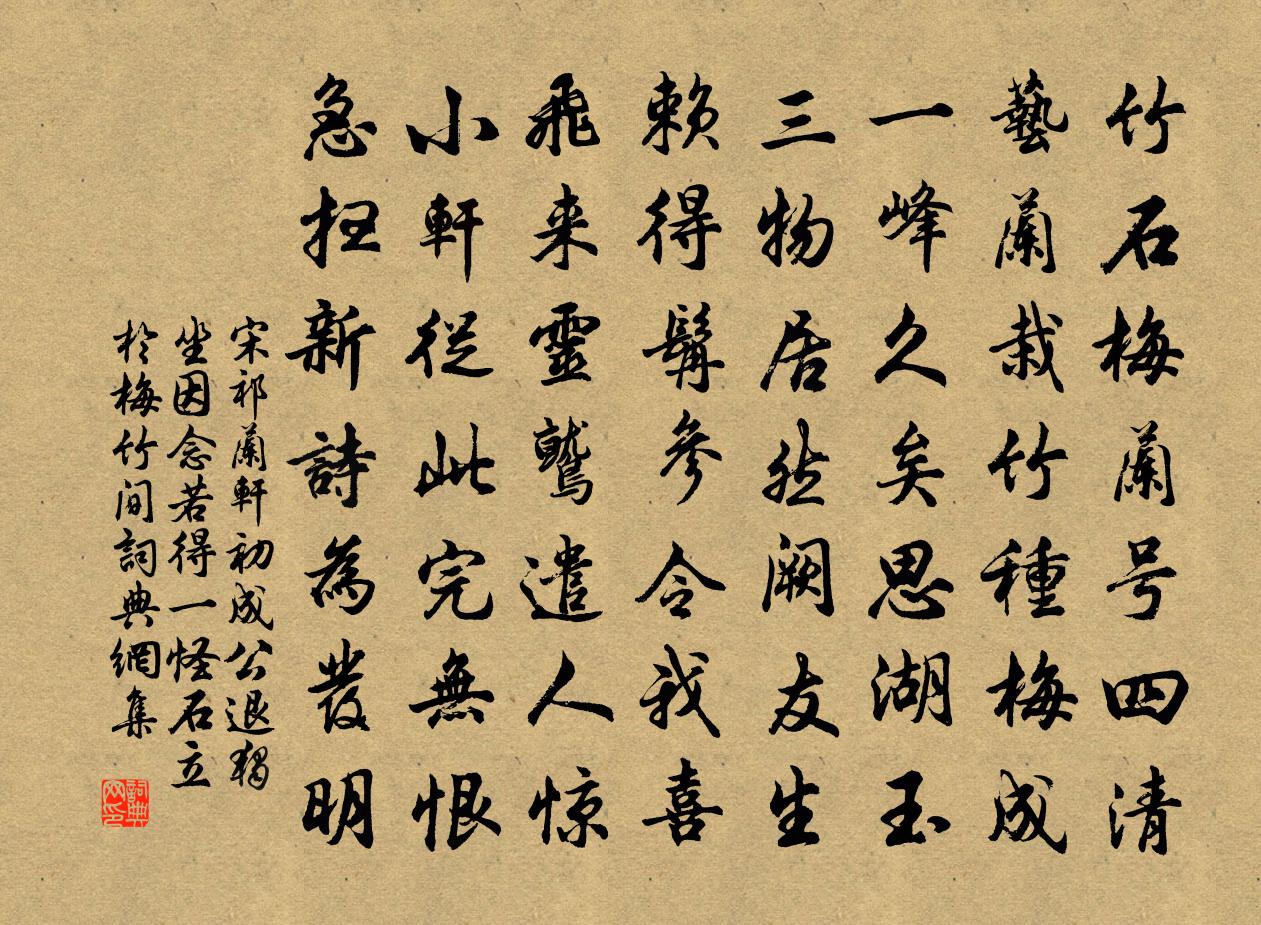 竹石梅蘭号四清
藝蘭栽竹種梅成
一峰久矣思湖玉
三物居然闕友生
賴得髯參令我喜
飛来靈鷲遣人惊
小軒從此完無恨
急扫新詩為發明
宋祁蘭軒初成公退獨
坐因念若得一怪石立
於梅竹间詞典網集
詞典网印